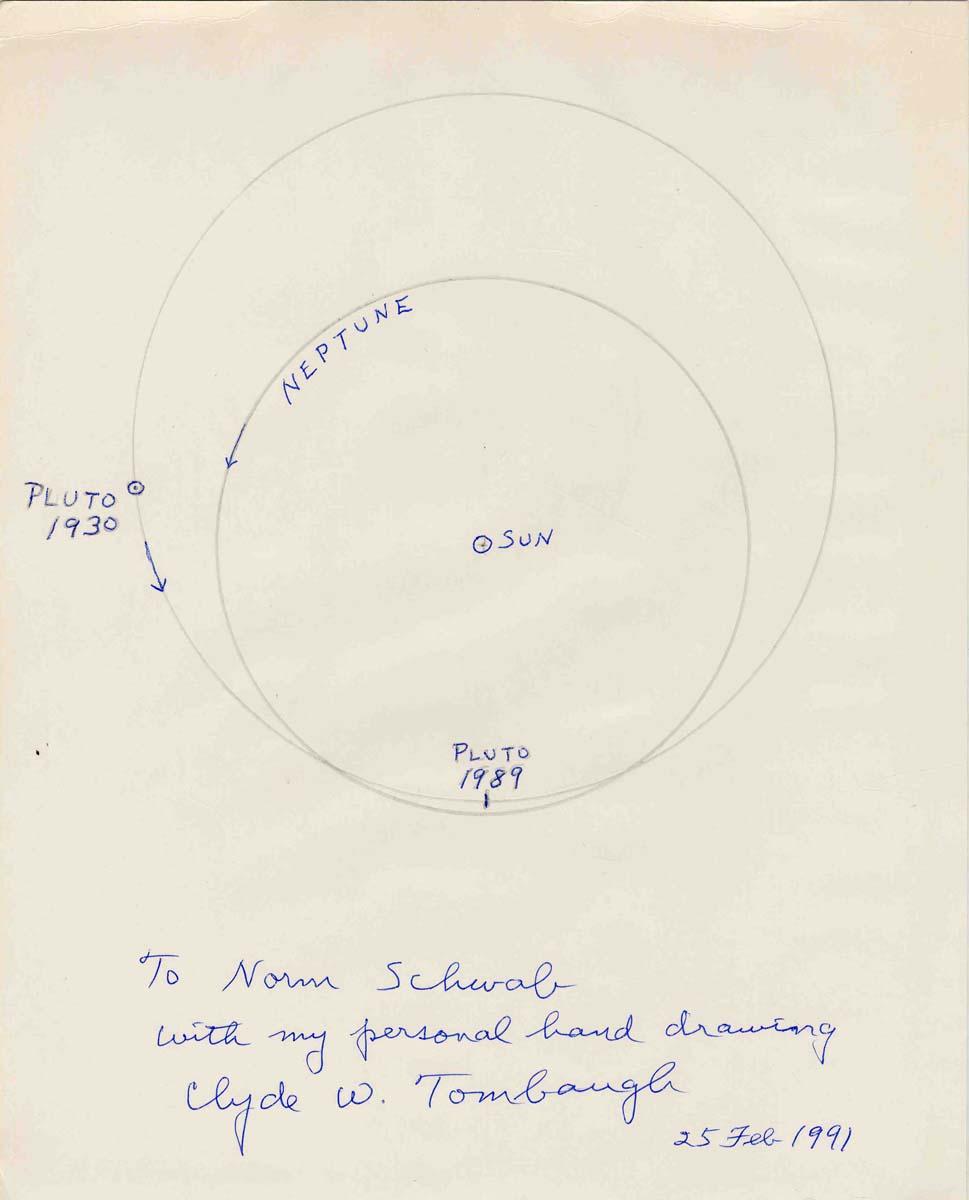 NEPTUNE
PLUTO
1930
SUN
PLUTO
1989
To Norm Schwab
with my personal hand drawing
Clyde W. Tombaugh
25 Feb 1991